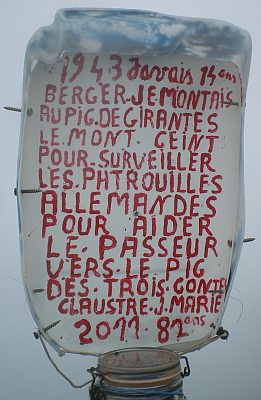 1943 Javais 14 ans
BERGER.JEMONTAIS
AU PIG.DE GIRANTES
LE.MONT.CEINT
POUR.SURVEILLER
LES.PHTROUILLES
ALLEMANDES
POUR AIDER
LE.PASSEUR
VERS.LE.PIG
DES.TROIS.CONTES
CLAUSTRE.J.MARIE
2011.82 ans